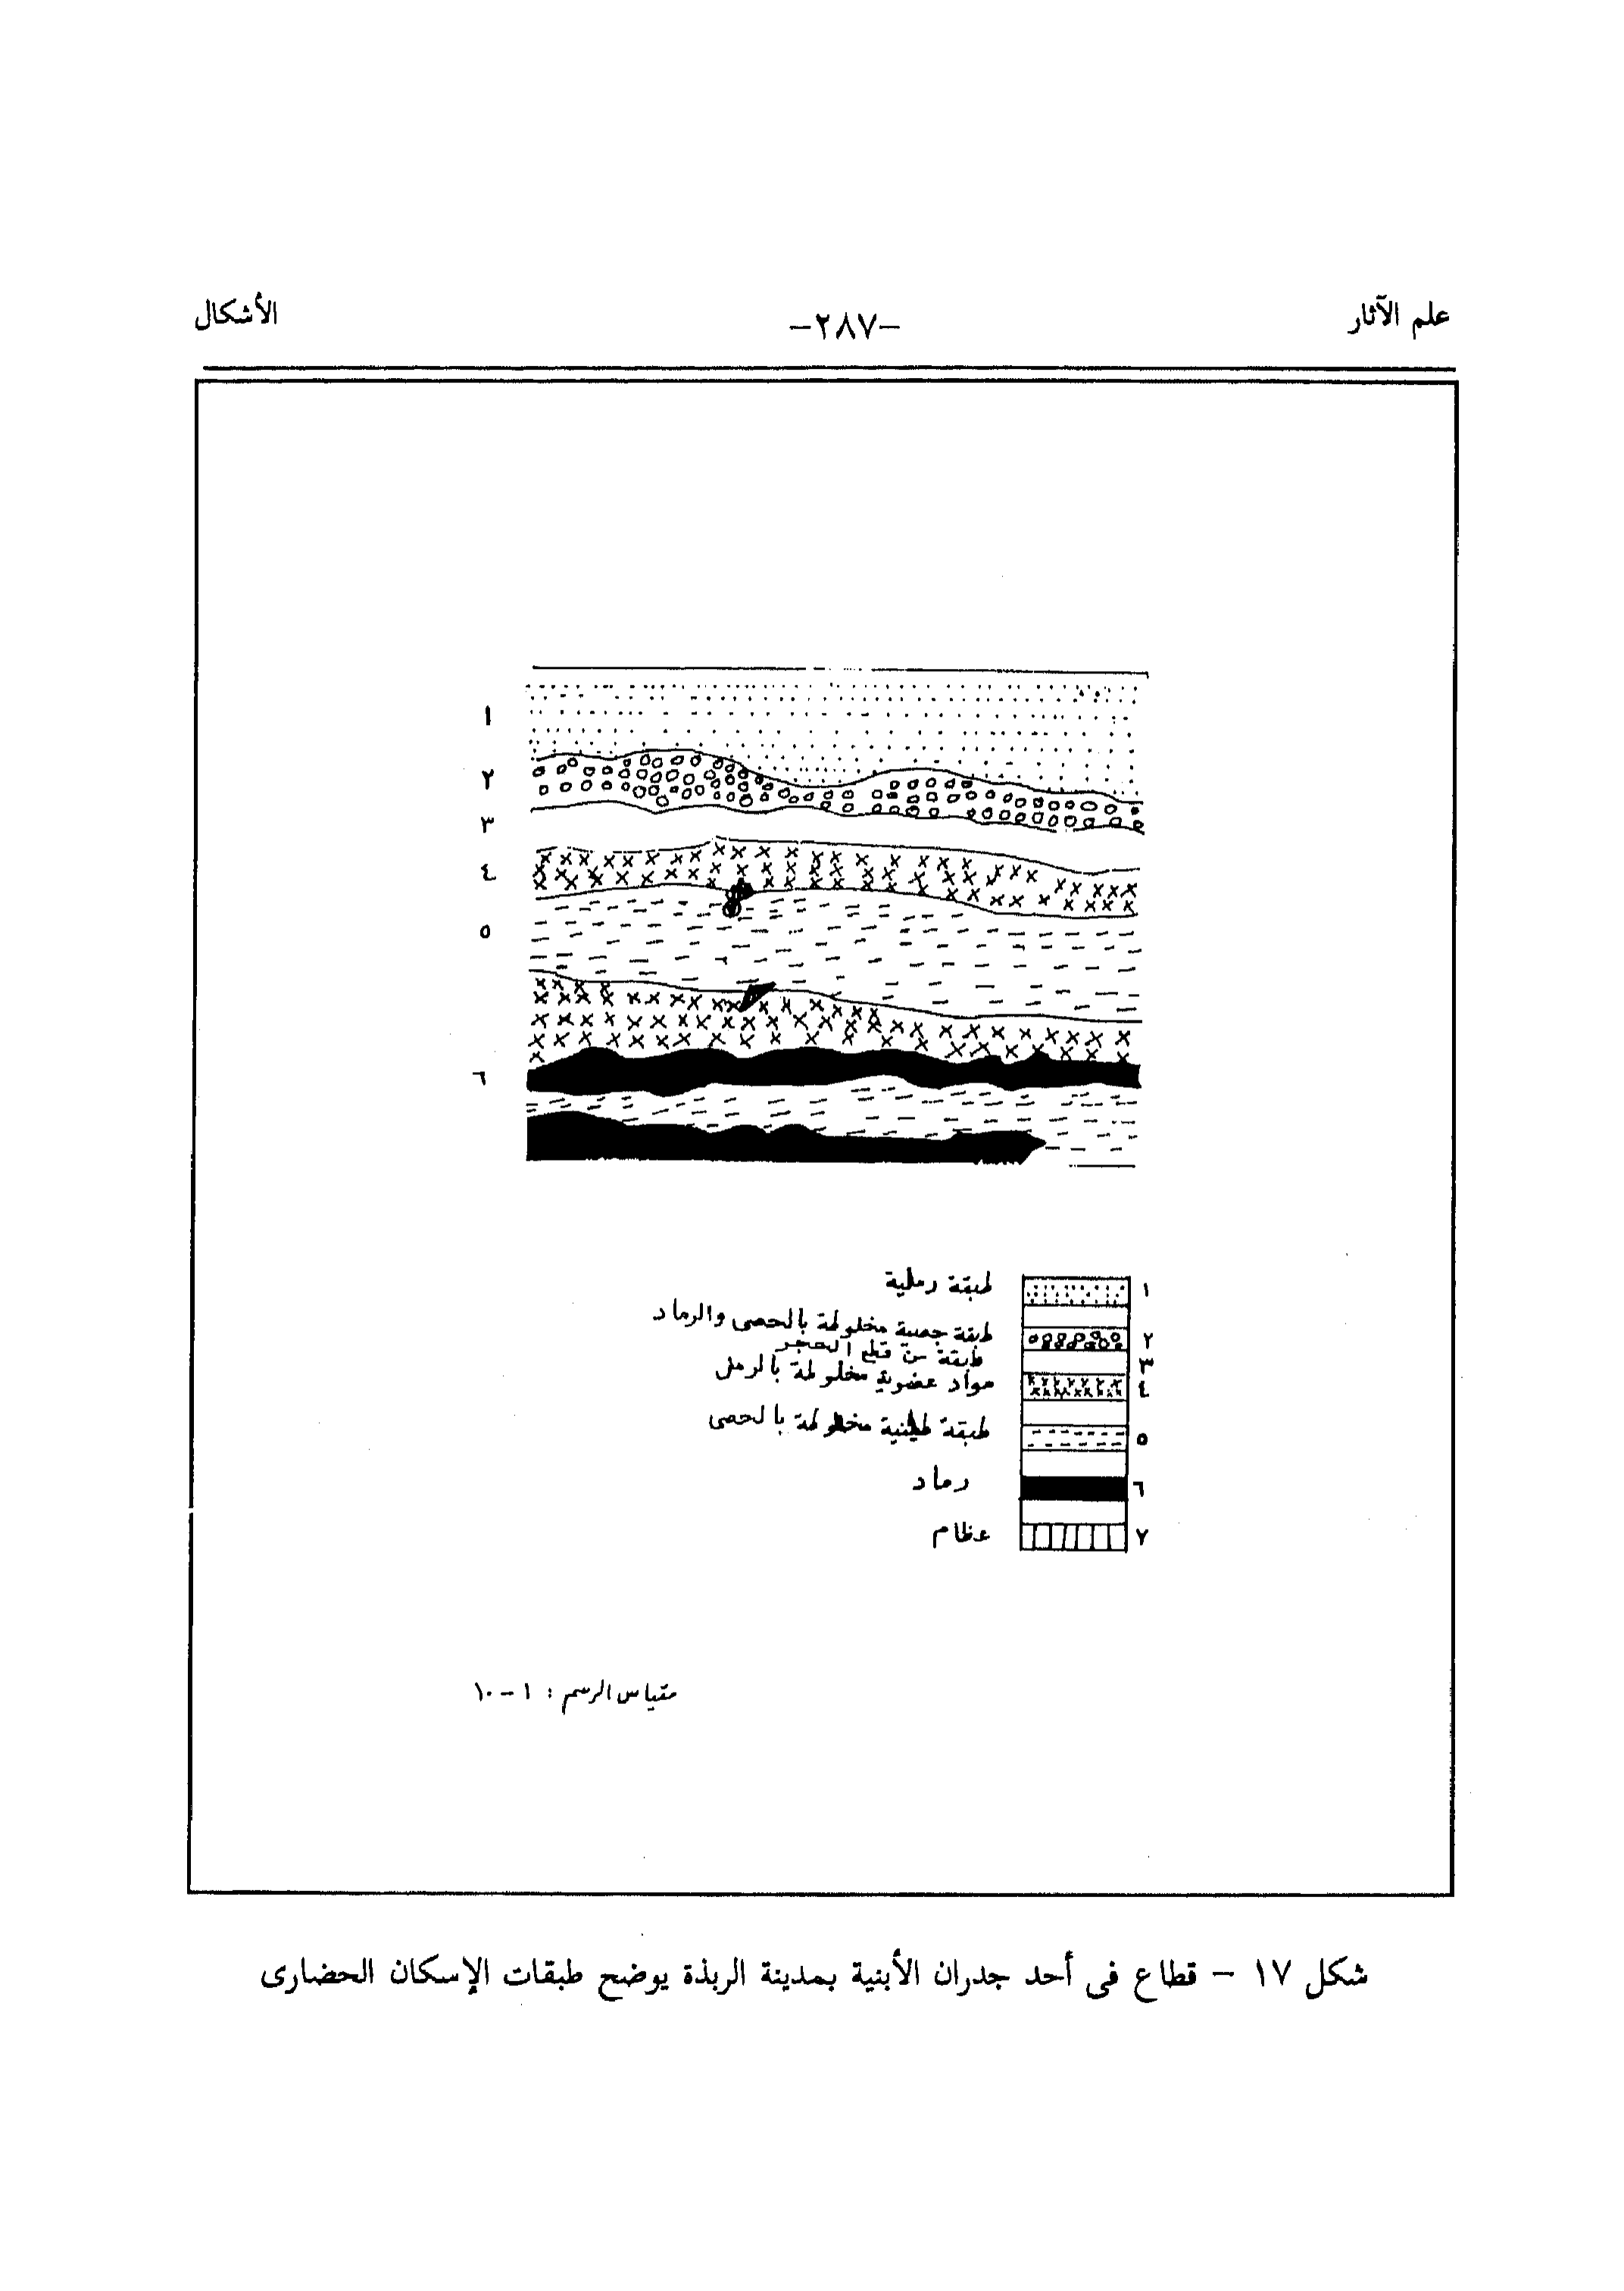 علم الآثار
-٢٨٧-
الأشكال
١
٢
٣
٤
٥
٦
١ طبقة رملية
٢ طبقة جصية مخلوطة بالحصى والرماد
٣ طبقة من قطع الحجر
٤ مواد عضوية مخلوطة بالرمل
٥ طبقة طينية مخلوطة بالحصى
٦ رماد
٧ عظام
مقياس الرسم : ١ - ١٠
شكل ١٧ - قطاع فى أحد جدران الأبنية بمدينة الربذة يوضح طبقات الإسكان الحضارى